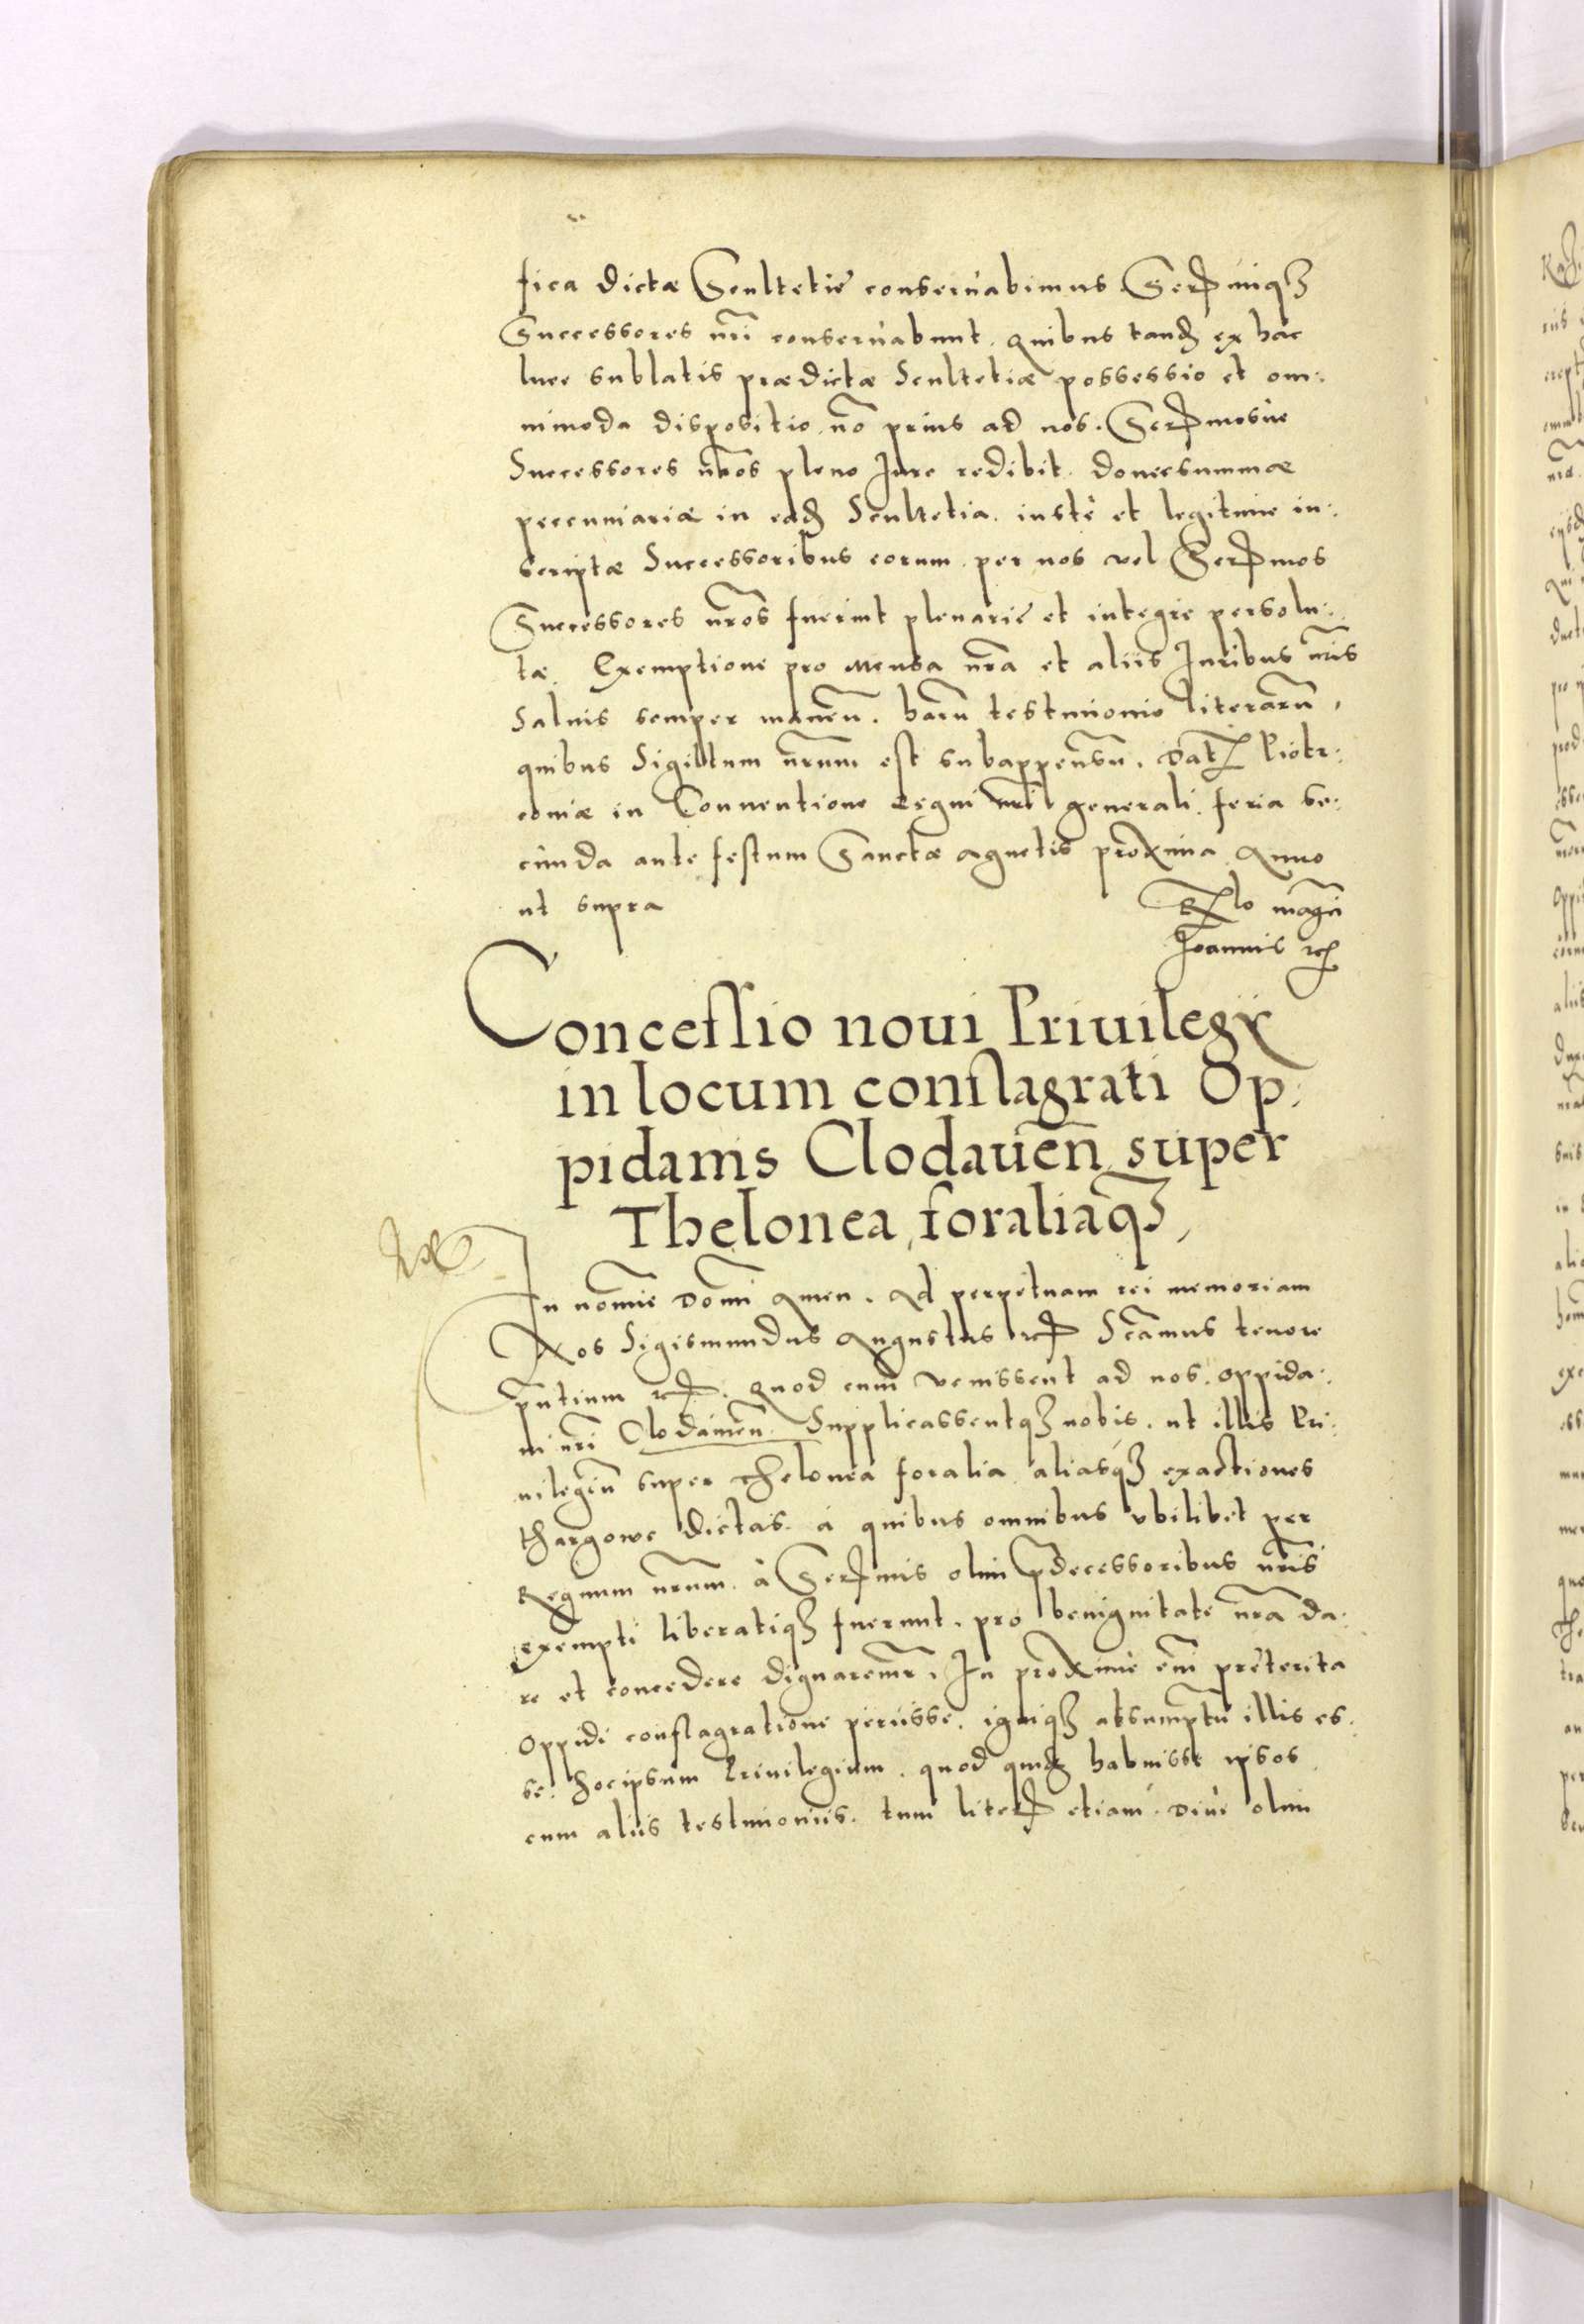 fica dictæ Scultetiæ conseruabimus Sermiq́ꝫ
Successores nr̃i conseruabunt. quibus tandẽ ex hac
luce sublatis prædictæ Scultetiæ possessio et om:
nimoda dispositio nõ prius ad nos. Sermosúe
Successores nr̃os pleno Iure redibit. donec summæ
peccuniariæ in eadẽ Scultetia. iustè et legitime in:
scriptæ Successoribus eorum per nos vel Sermos
Successores nr̃os fuerint plenariè et integre persolu:
tæ. Exemptione pro mensa nr̃a et aliis Iuribus nr̃is
Saluis semper manen̄. harū testimonio literarū,
quibus Sigillum nr̃um est subappensū. Dat Piotr:
coniæ in Conuentione Regni nr̃i generali. feria se:
cunda ante festum Sanctæ Agnetis proxima Anno
ut supra
Rlo magci
Ioannis rc
Concessio noui Priuilegij
in locum conflagrati Op:
pidanis Clodauen̄ super
Thelonea, foraliaq́ꝫ,
In nomie Domi Amen. Ad perpetuam rei memoriam
Nos Sigismundus Augustus rc Scamus tenore
pn̄tium rc. Quod cum venissent ad nos. oppida:
ni nr̃i Clodauien̄. Supplicassentqꝫ nobis. ut illis Pri:
uilegiū super Thelonea foralia aliasqꝫ exactiones
thargowe dictas. à quibus omnibus vbilibet per
Regnum nr̃um. à Sermis olim p̄decessoribus nr̃is
exempti liberatiqꝫ fuerunt. pro benignitate nr̃a da:
re et concedere dignaremr. In proximè eni præterita
Oppidi conflagratione periisse. igniqꝫ absumptū illis es:
se. hocipsum Priuilegium. quod quidẽ habuisse ipsos
cum aliis testimoniis. tum liter etiam. Diui olim